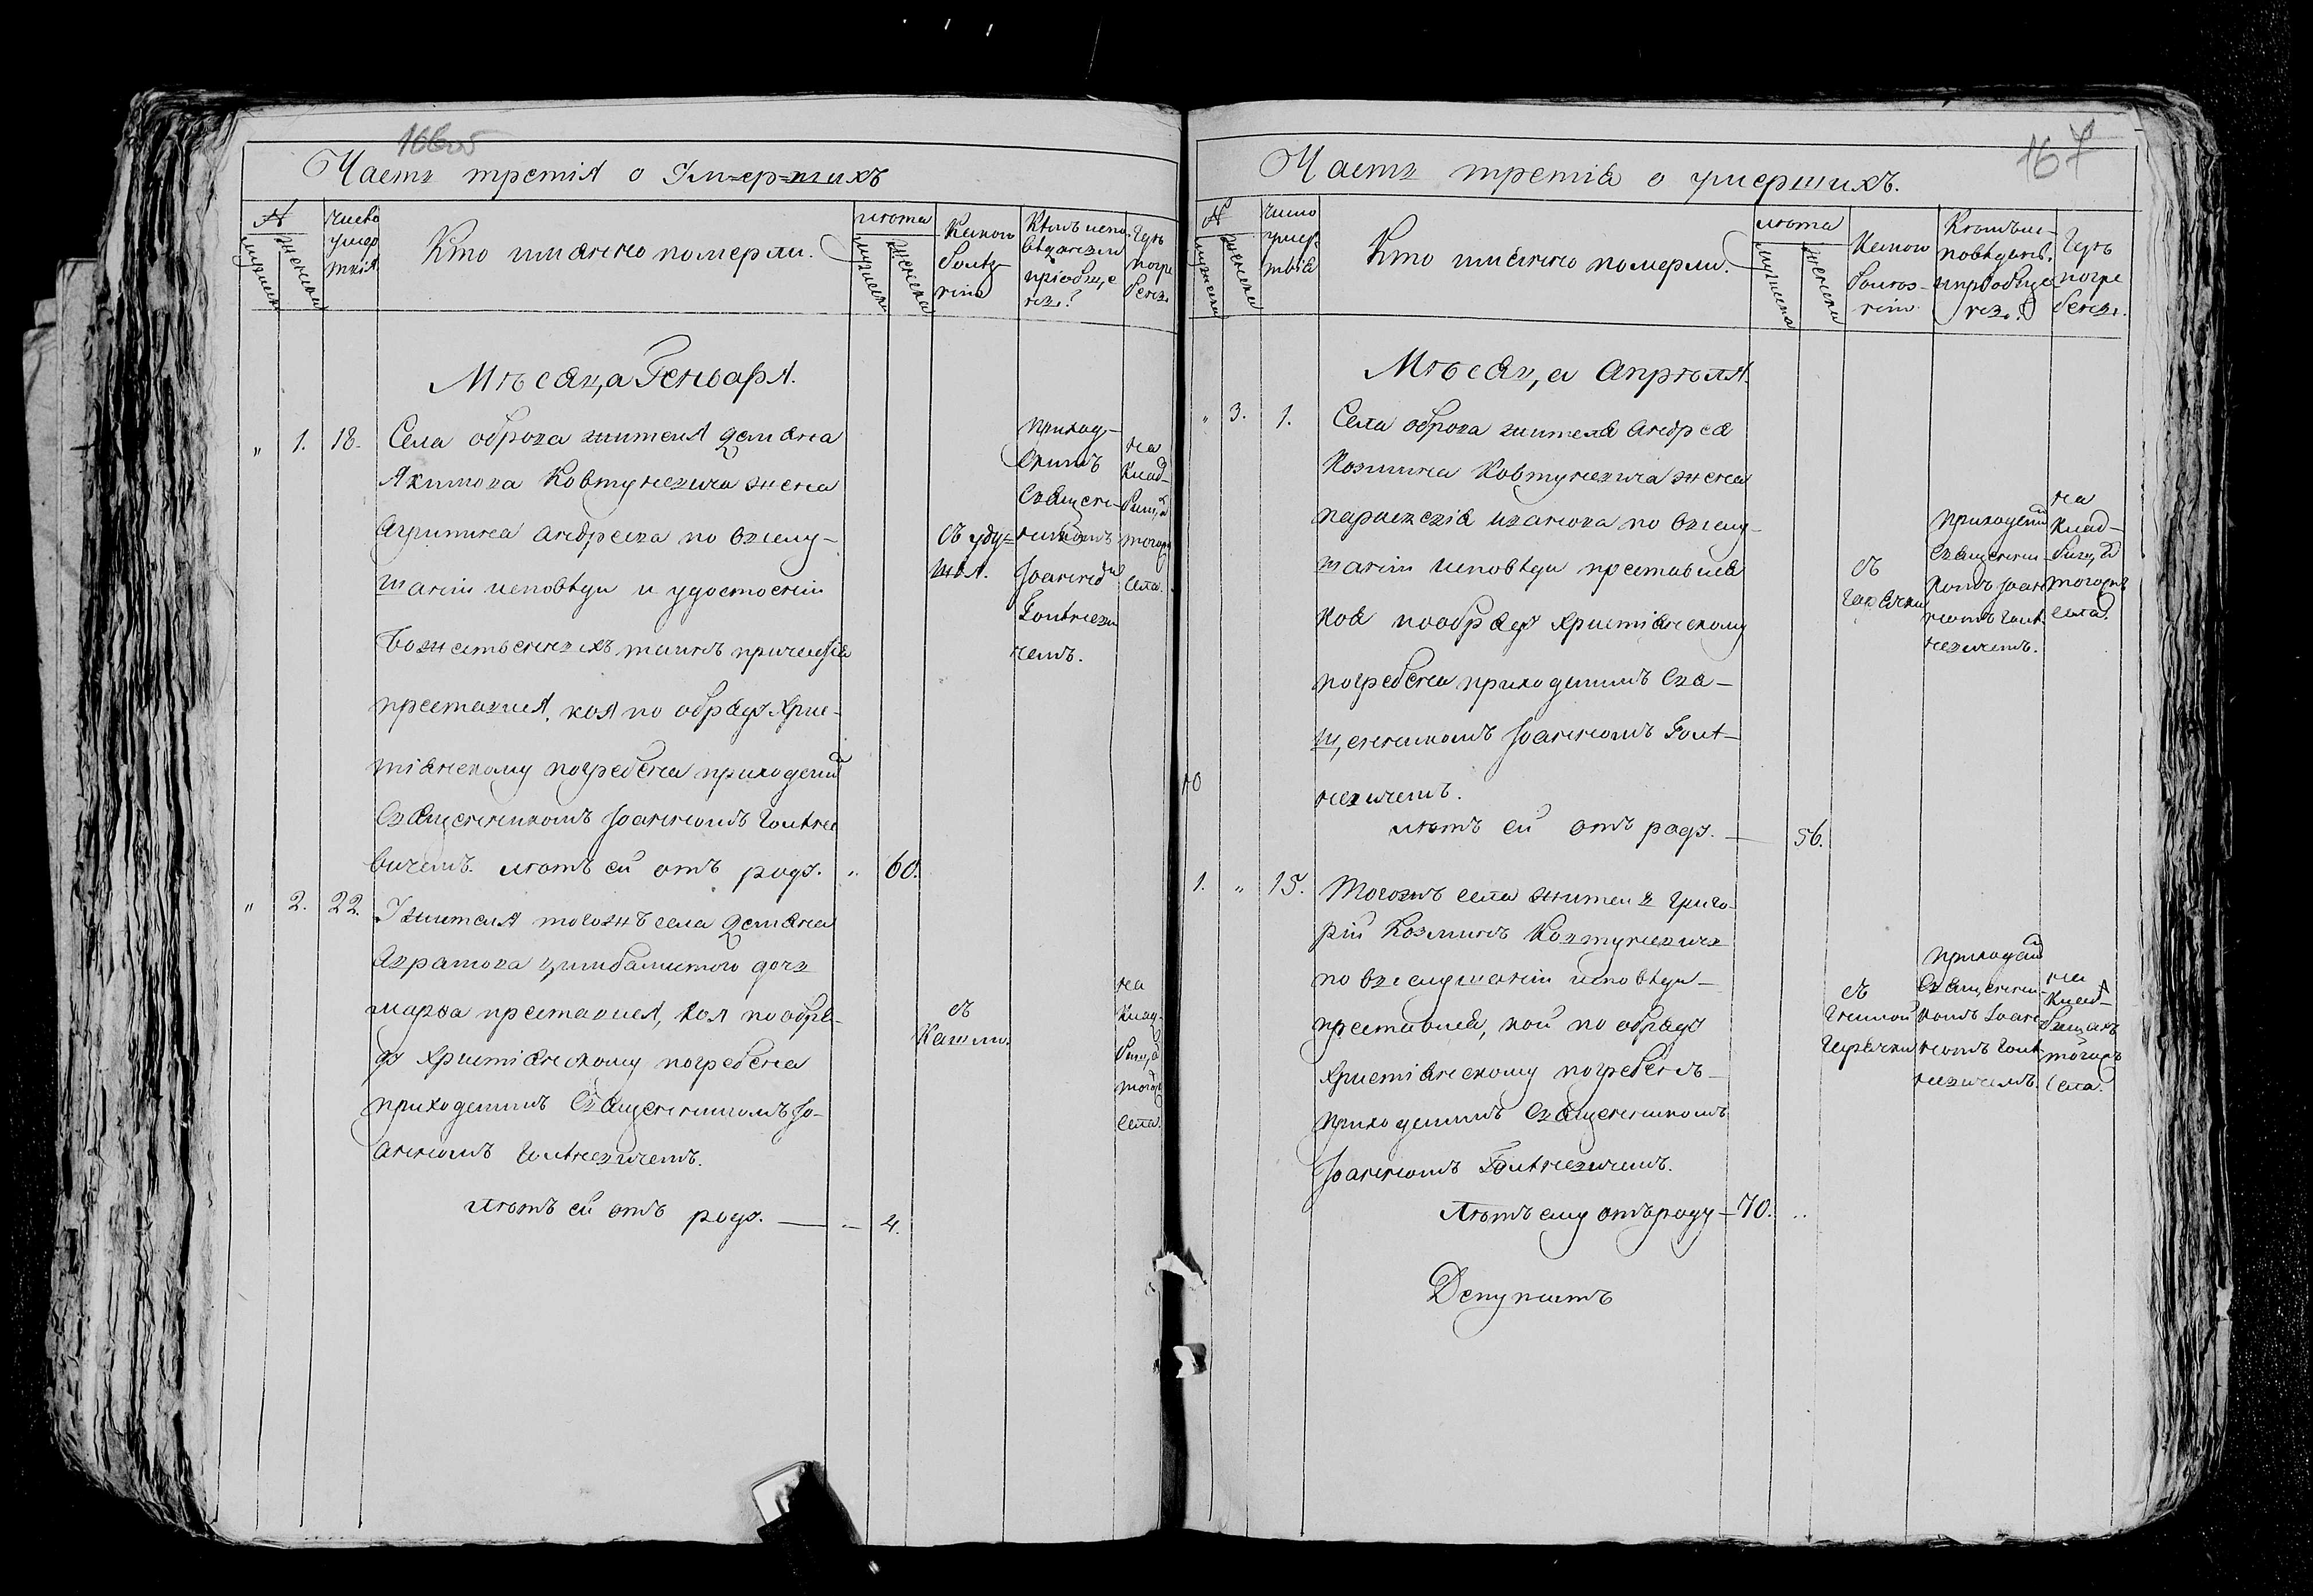 Часть третія о Умершихъ
№
мужеска
женска
число умерт твія
Кто имянно померли.
лѣта
мужеска
женска
Какою болѣз нію
Кѣмъ испо вѣдованы и пріобще ны?
Гдѣ погре бены.
Мѣсяца Генваря.
„ 1. 18. Села оброка жителя Демяна
Якимова Ковтуневича жена
Агрипина Андреева по выслу-
шаніи исповѣди и удостоеніи
Божественныхъ таинъ причастія
преставися, коя по обряду Хрис-
тіянскому погребена приходским
Священникомъ Іоанномъ Гоит не
вичемъ. лѣтъ ей отъ роду. „ 60.
съ уду=
шья.
приход-
скимъ
Священ-
никомъ
Іоанном
Гоитневи
чемъ.
на
клад-
бищѣ
тогожъ
села.
„ 2. 22. У жителя тогожъ села Демяна
Аврамова Цимбалистого дочь
марѳа преставися, коя по обря-
ду Христіянскому погребена
приходскимъ Священникомъ Іо-
анномъ Гоитневичемъ.
лѣтъ ей отъ роду. — — 4.
съ
Кашлю.
на
клад-
бищѣ
тогожъ
села.
167
Часть третія о умершихъ.
№
мужеска
женска
число умер твія
Кто имянно померли.
лѣта
мужеска
женска
Какою болѣз- нію
Кѣмъ ис- повѣданы и пріобще ны?
Гдѣ погре бены.
Мѣсяца Апрѣля.
„ 3. 1. Села оброка жителя Андрея
Козмина Ковтуневича жена
параскевія Иванова по выслу-
шаніи исповѣди преставися
коя по обряду Христіянскому
погребена приходскимъ Свя-
щенникомъ Іоанномъ Гоит-
невичемъ.
лѣтъ ей отъ роду. — 56.
съ
горячки
приходским
Священни-
комъ Іоан
номъ Гоит
невичемъ.
на
клад-
бищѣ
тогожъ
села.
1. „ 15. Тогожъ села житель Григо-
рій Козминъ Ковтуневичь
по выслушаніи исповѣди-
преставися, кой по обряду
Христіянскому погребенъ-
приходскимъ Священникомъ
Іоанномъ Гоитневичемъ.
лѣтъ ему отъ роду — 70. „
съ
гнилой
горячки
приходским
Священни-
комъ Іоан
номъ Гоит
невичемъ.
на
клад-
бищахъ
тогожъ
села.
Депутатъ